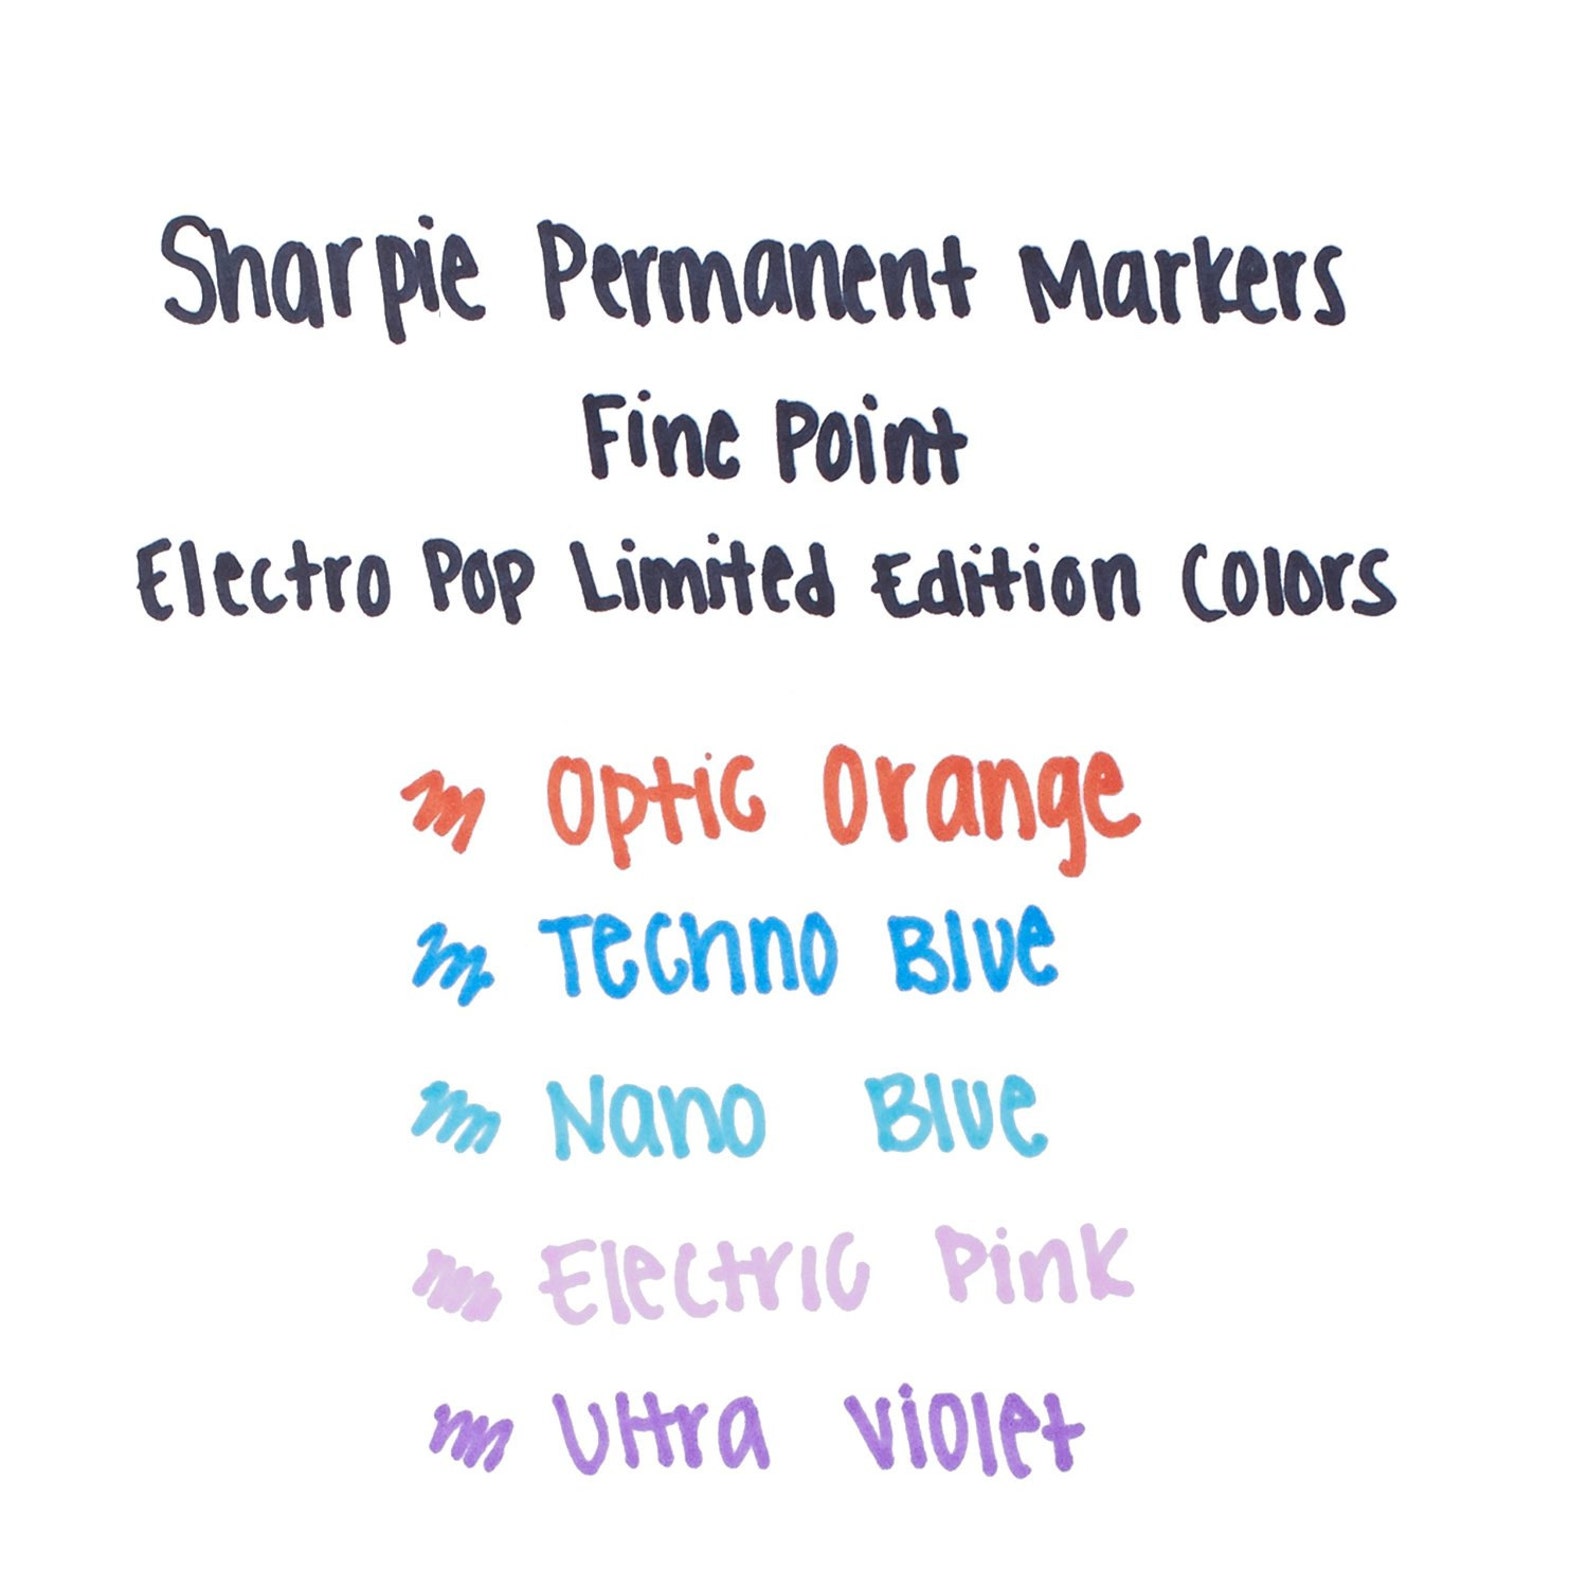 Sharpie Permanent Markers
Fine Point
Electro Pop Limited Edition Colors
Optic Orange
Techno Blue
Nano Blue
Electric Pink
Ultra Violet